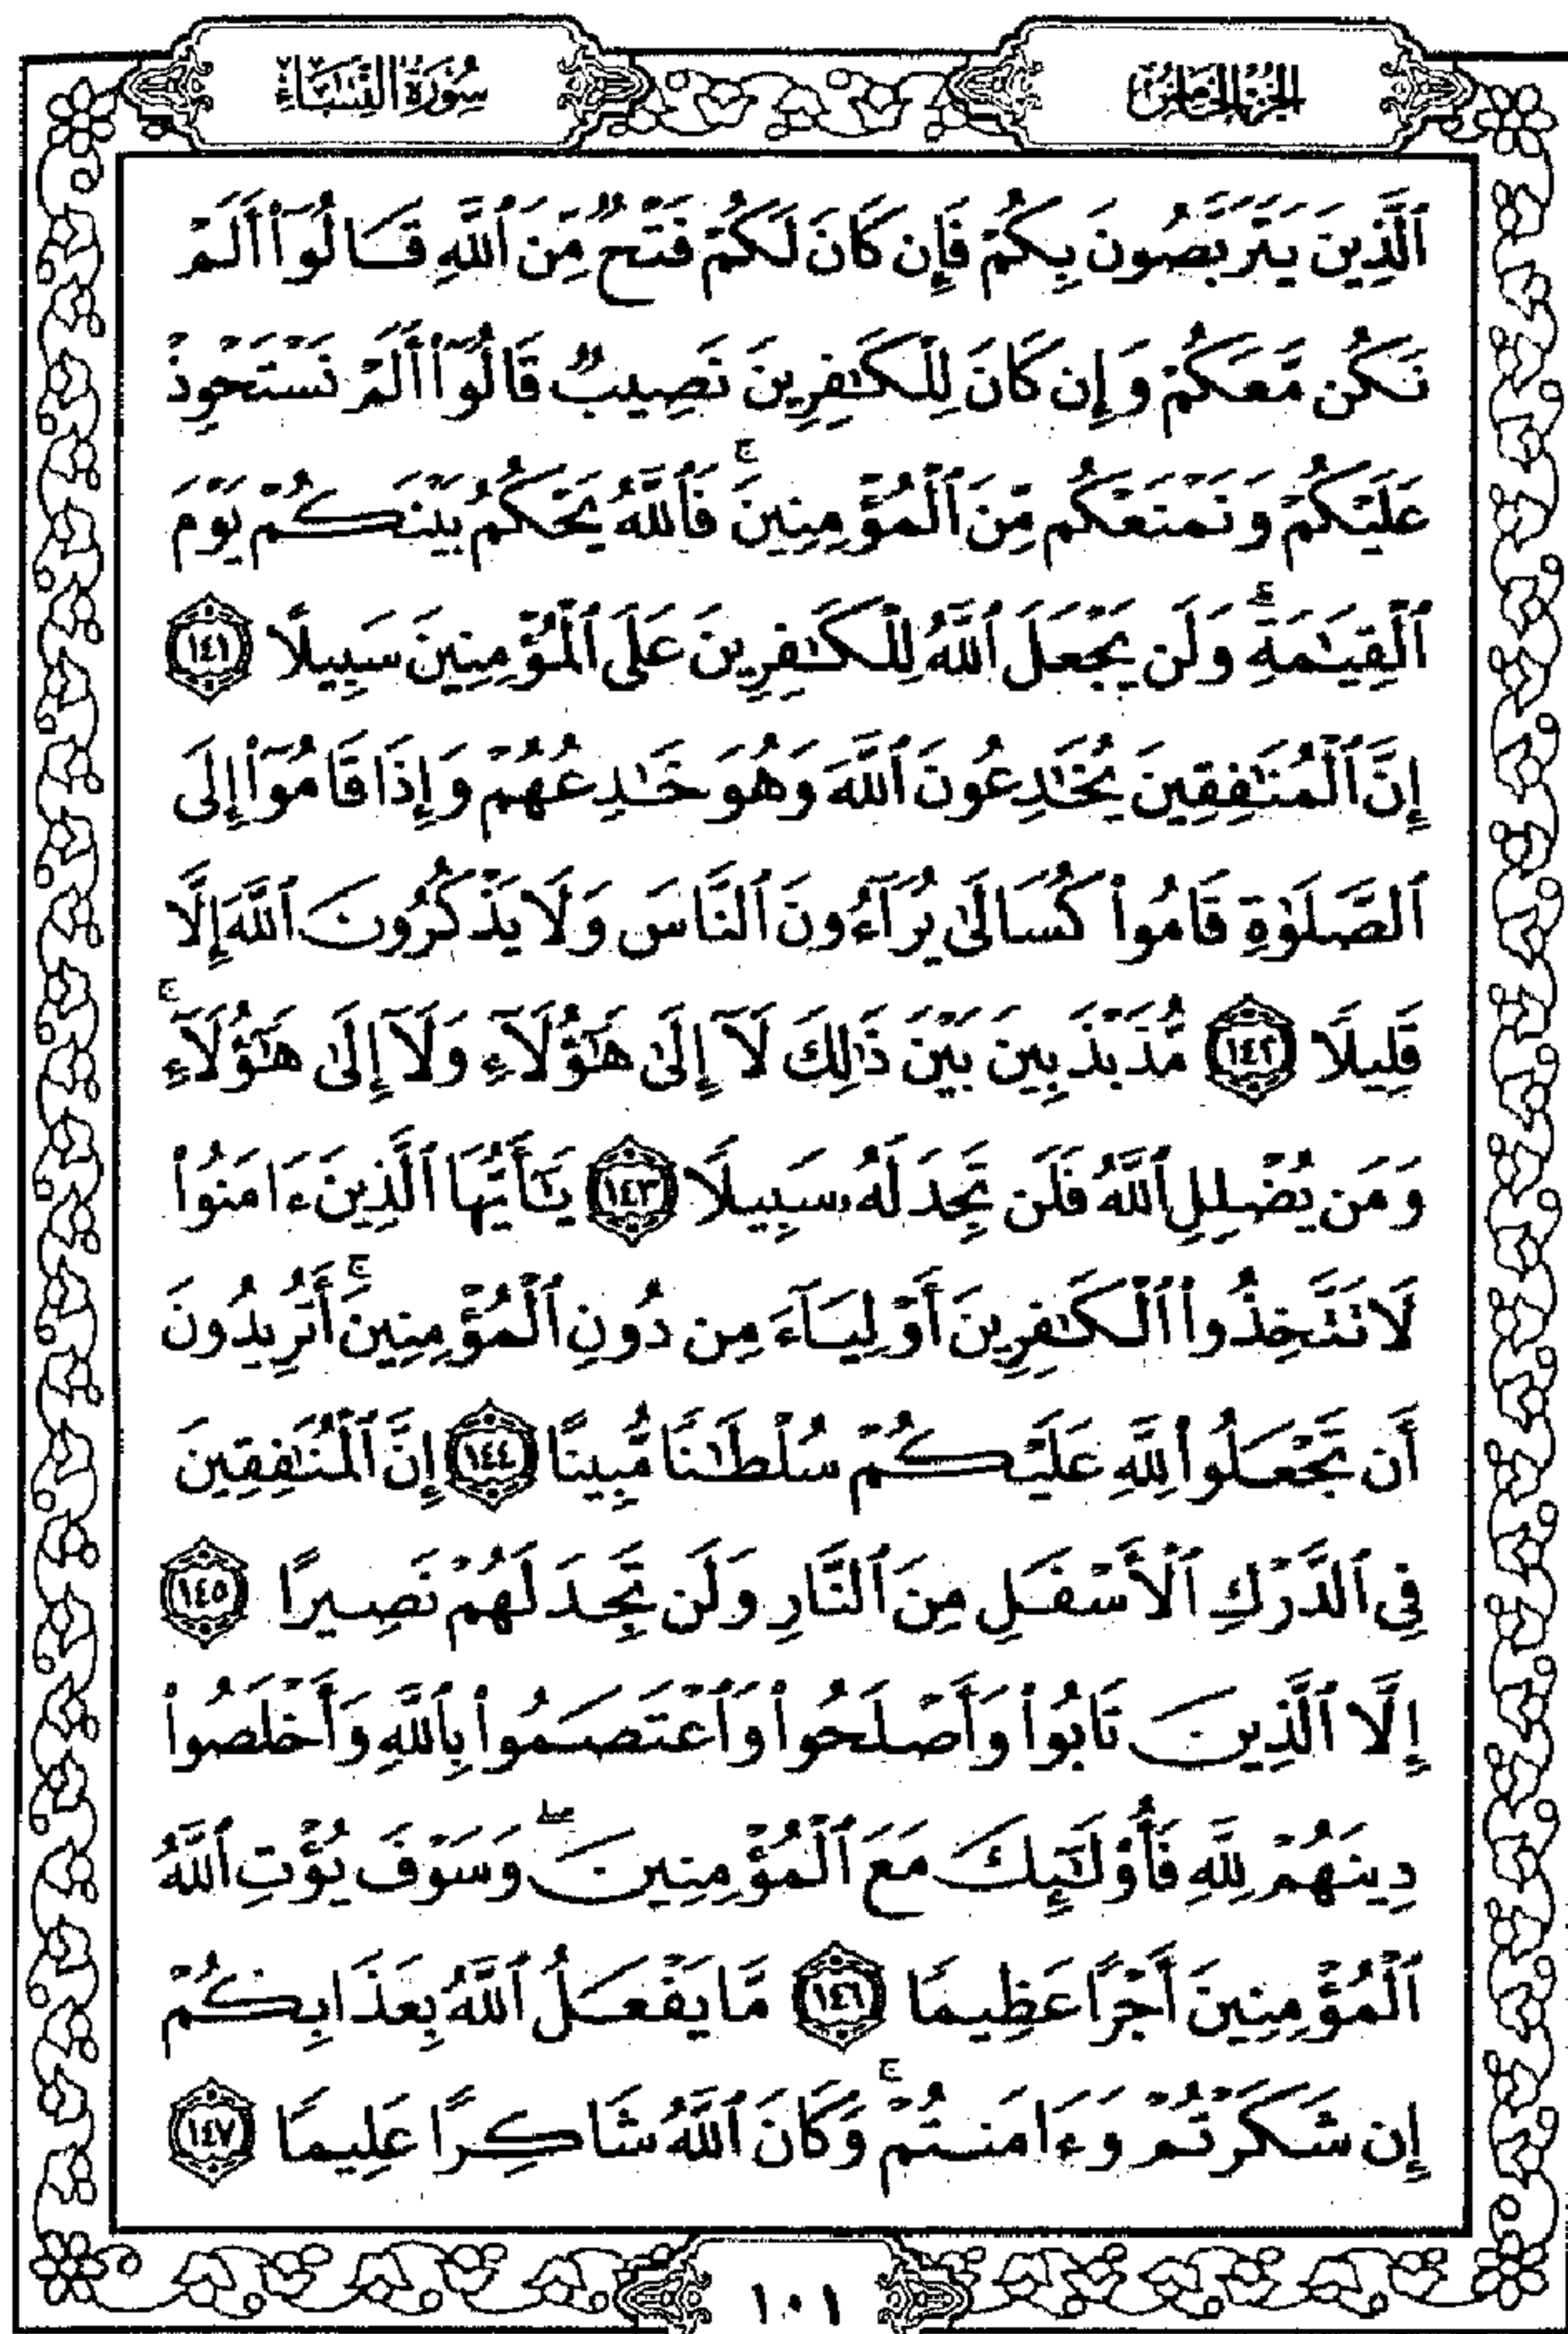 الجزء الخامس
سورة النساء
ٱلَّذِينَ يَتَرَبَّصُونَ بِكُمۡ فَإِن كَانَ لَكُمۡ فَتۡحٞ مِّنَ ٱللَّهِ قَالُوٓاْ أَلَمۡ
نَكُن مَّعَكُمۡ وَإِن كَانَ لِلۡكَٰفِرِينَ نَصِيبٞ قَالُوٓاْ أَلَمۡ نَسۡتَحۡوِذۡ
عَلَيۡكُمۡ وَنَمۡنَعۡكُم مِّنَ ٱلۡمُؤۡمِنِينَۚ فَٱللَّهُ يَحۡكُمُ بَيۡنَكُمۡ يَوۡمَ
ٱلۡقِيَٰمَةِۚ وَلَن يَجۡعَلَ ٱللَّهُ لِلۡكَٰفِرِينَ عَلَى ٱلۡمُؤۡمِنِينَ سَبِيلًا ١٤١
إِنَّ ٱلۡمُنَٰفِقِينَ يُخَٰدِعُونَ ٱللَّهَ وَهُوَ خَٰدِعُهُمۡ وَإِذَا قَامُوٓاْ إِلَى
ٱلصَّلَوٰةِ قَامُواْ كُسَالَىٰ يُرَآءُونَ ٱلنَّاسَ وَلَا يَذۡكُرُونَ ٱللَّهَ إِلَّا
قَلِيلٗا ١٤٢ مُّذَبۡذَبِينَ بَيۡنَ ذَٰلِكَ لَآ إِلَىٰ هَٰٓؤُلَآءِ وَلَآ إِلَىٰ هَٰٓؤُلَآءِۚ
وَمَن يُضۡلِلِ ٱللَّهُ فَلَن تَجِدَ لَهُۥ سَبِيلٗا ١٤٣ يَٰٓأَيُّهَا ٱلَّذِينَ ءَامَنُواْ
لَا تَتَّخِذُواْ ٱلۡكَٰفِرِينَ أَوۡلِيَآءَ مِن دُونِ ٱلۡمُؤۡمِنِينَۚ أَتُرِيدُونَ
أَن تَجۡعَلُواْ لِلَّهِ عَلَيۡكُمۡ سُلۡطَٰنٗا مُّبِينًا ١٤٤ إِنَّ ٱلۡمُنَٰفِقِينَ
فِي ٱلدَّرۡكِ ٱلۡأَسۡفَلِ مِنَ ٱلنَّارِ وَلَن تَجِدَ لَهُمۡ نَصِيرًا ١٤٥
إِلَّا ٱلَّذِينَ تَابُواْ وَأَصۡلَحُواْ وَٱعۡتَصَمُواْ بِٱللَّهِ وَأَخۡلَصُواْ
دِينَهُمۡ لِلَّهِ فَأُوْلَٰٓئِكَ مَعَ ٱلۡمُؤۡمِنِينَۖ وَسَوۡفَ يُؤۡتِ ٱللَّهُ
ٱلۡمُؤۡمِنِينَ أَجۡرًا عَظِيمٗا ١٤٦ مَّا يَفۡعَلُ ٱللَّهُ بِعَذَابِكُمۡ
إِن شَكَرۡتُمۡ وَءَامَنتُمۡۚ وَكَانَ ٱللَّهُ شَاكِرًا عَلِيمٗا ١٤٧
١٠١